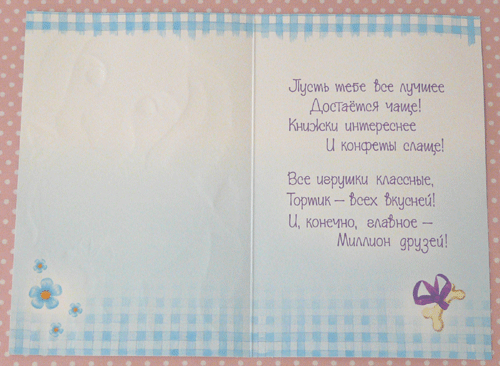 Пусть тебе все лучшее
Достаётся чаще!
Книжски интереснее
И конфеты слаще!
Все игрушки классные,
Тортик — всех вкусней!
И, конечно, главное —
Миллион друзей!